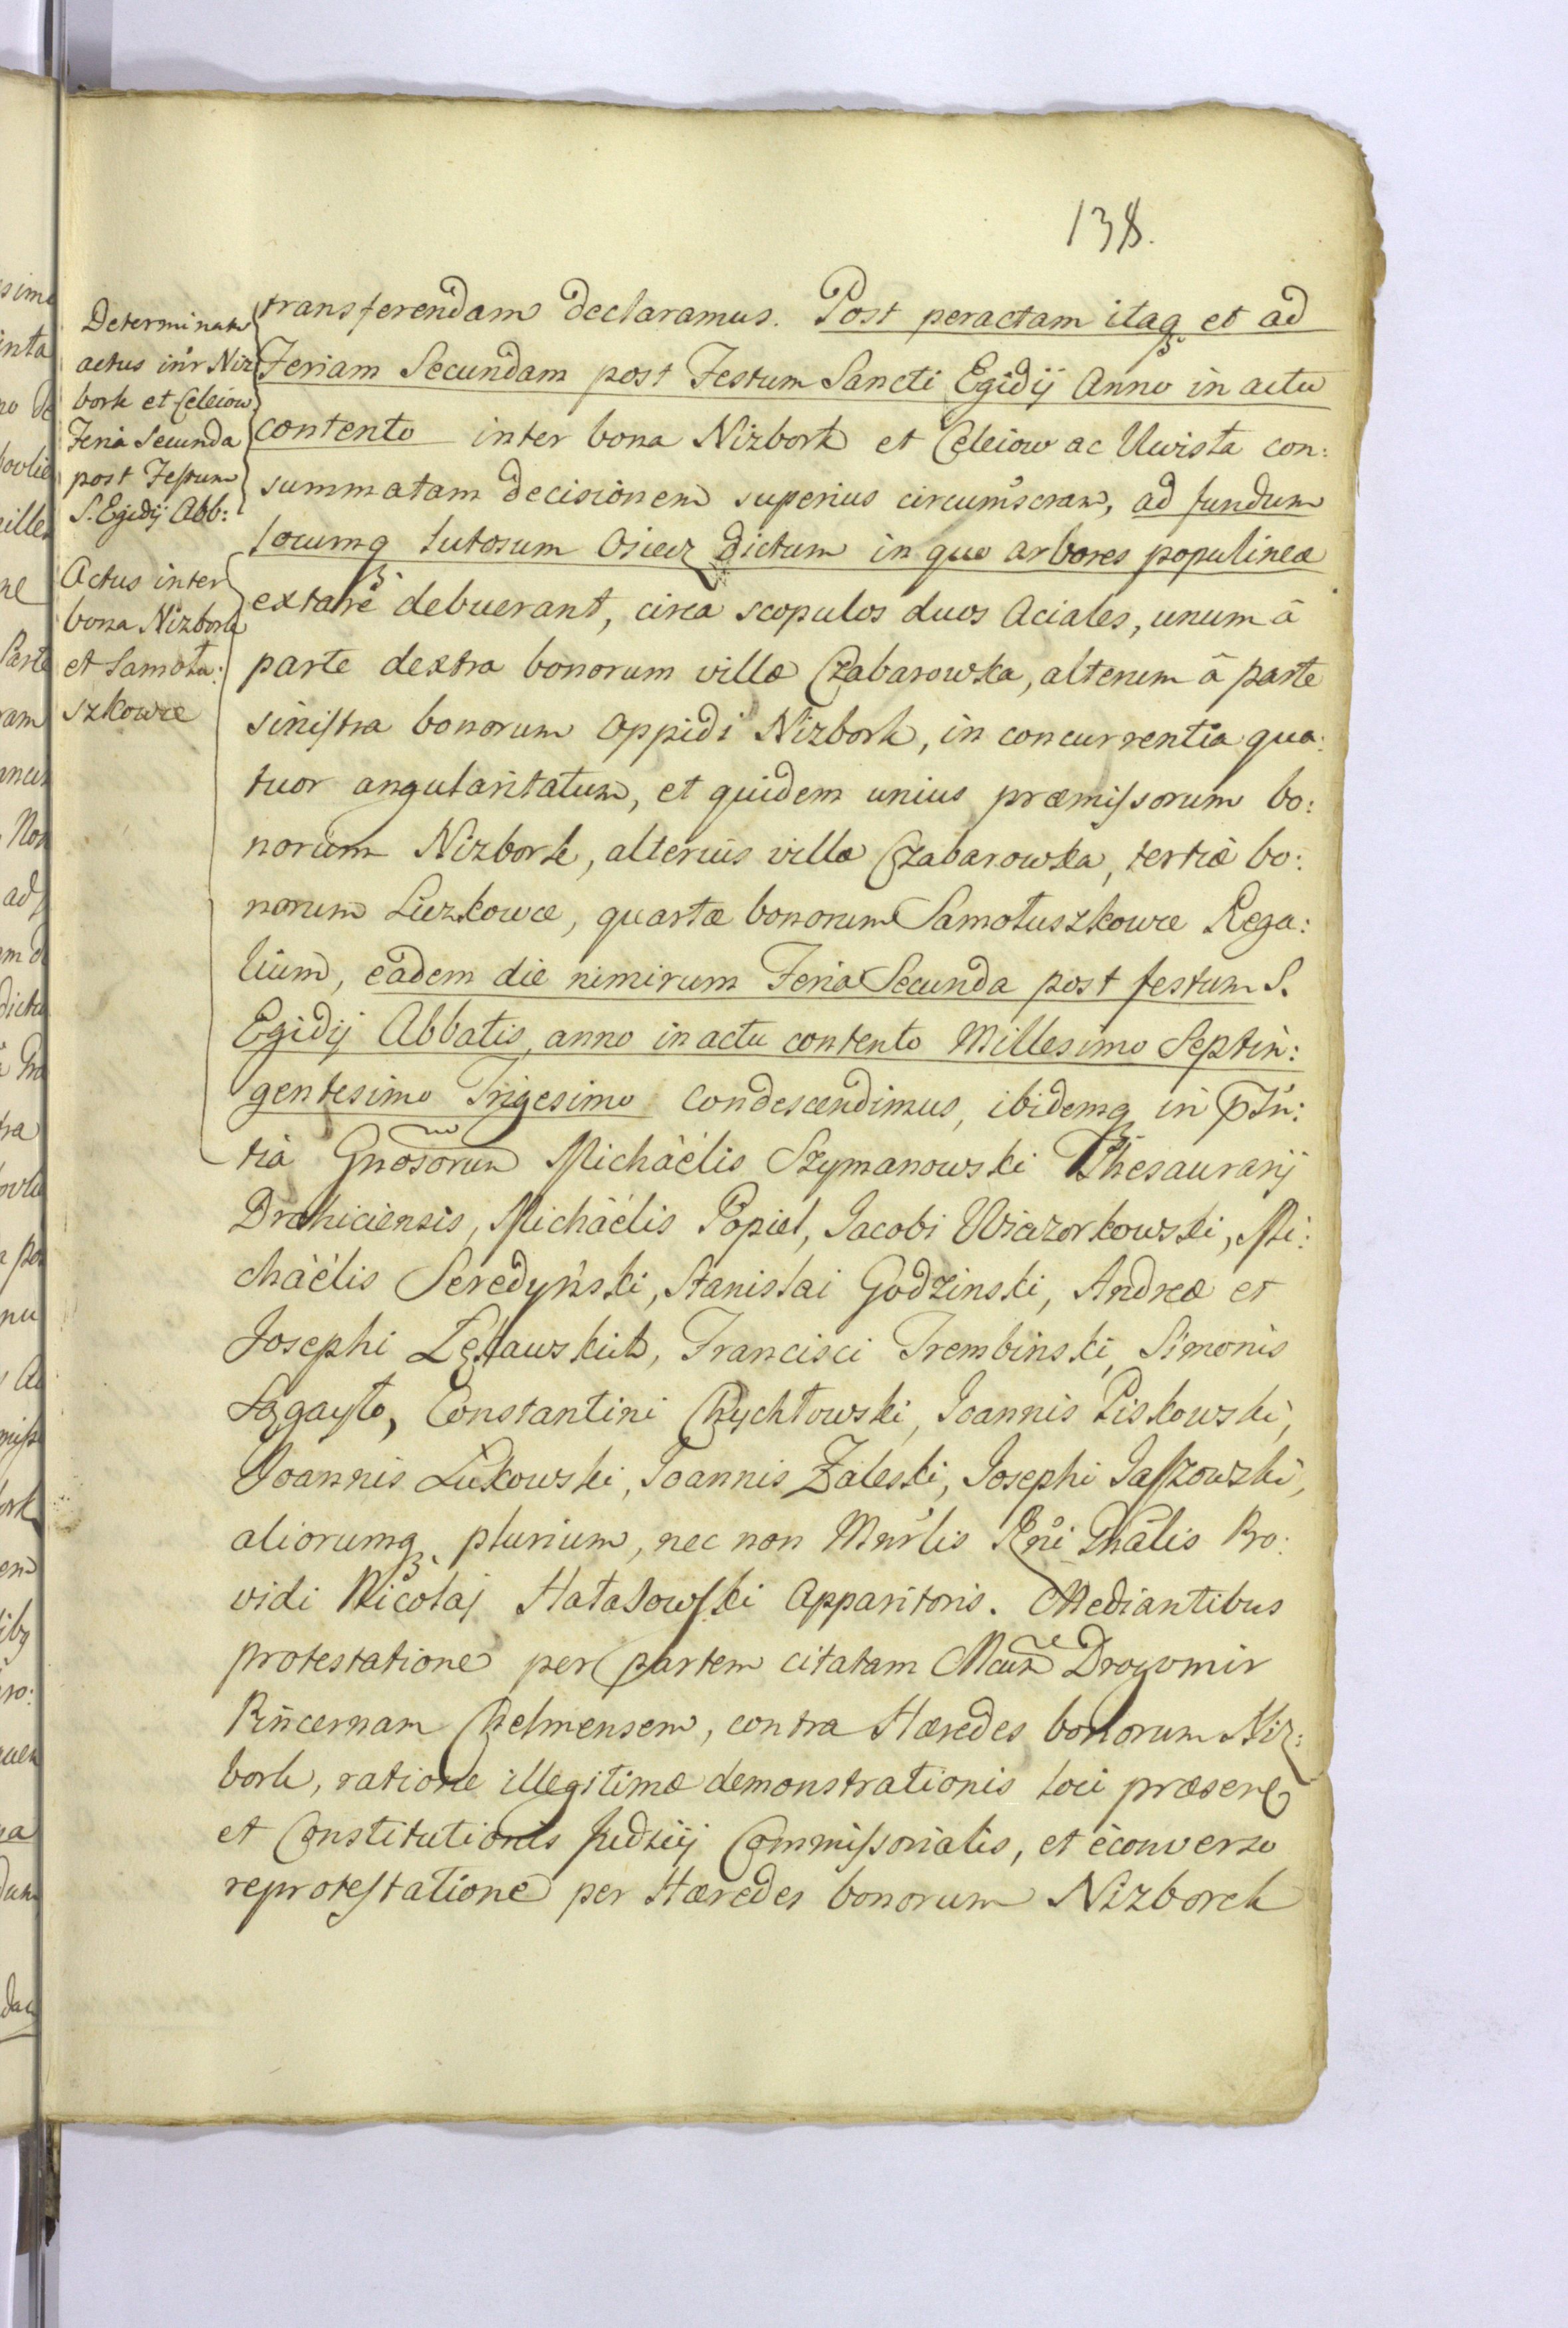 138.
Determinatur
actus int'r Niz
bork et Celeiow
Feria Secunda
post Festum
S. Egidij Abb:
Actus inter
bona Nizbork
et Samołu:
szkowce
transferendam declaramus. Post peractam itaq3 et ad
Feriam Secundam post Festum Sancti Egidij Anno in actu
contento inter bona Nizbork et Celeiow ac Uwisła con:
summatam decisionem superius circumscram, ad fundum
locumq3 lutosum Osiecz dictum in quo arbores populineæ
extare debuerant, circa scopulos duos Aciales, unum â
parte dextra bonorum villæ Czabarowka, alterum â parte
sinistra bonorum oppidi Nizbork, in concurrentia qua:
tuor angularitatum, et quidem unius præmissorum bo:
norum Nizbork, alterius villæ Czabarowka, tertiæ bo:
norum Liczkowce, quartæ bonorum Samołuszkowce Rega:
lium, eâdem die nimirum Feria Secunda post festum S.
Egidij Abbatis, anno in actu contento Millesimo Septin:
gentesimo Trigesimo condescendimus, ibidemq3 in p̄tn:
tia Gnosorum Michäelis Szymanowski Thesaurarij
Drohiciensis, Michäelis Popiel, Jacobi Wieczorkowski, Mi:
chäelis Seredyński, Stanislai Godzinski, Andreæ et
Josephi Francisci Trembinski, Simonis
Constantini Chychłowski, Joannis Piskowski,
Joannis Lukowski, Joannis Zaleski, Josephi Jaszowski,
aliorumq3 plurium, nec non Mnrlis Rni Ghalis Pro:
vidi Nicolaj Hatałowski Apparitoris. Mediantibus
protestatione per partem citatam Drogomir
Pincernam Chelmensem, contra Hæredes bonorum Niz:
bork, ratione illegitimæ demonstrationis loci præsens
et Constitutionis Judicij Commissorialis, et èconverso
reprotestatione per Hæredes bonorum Nizborck